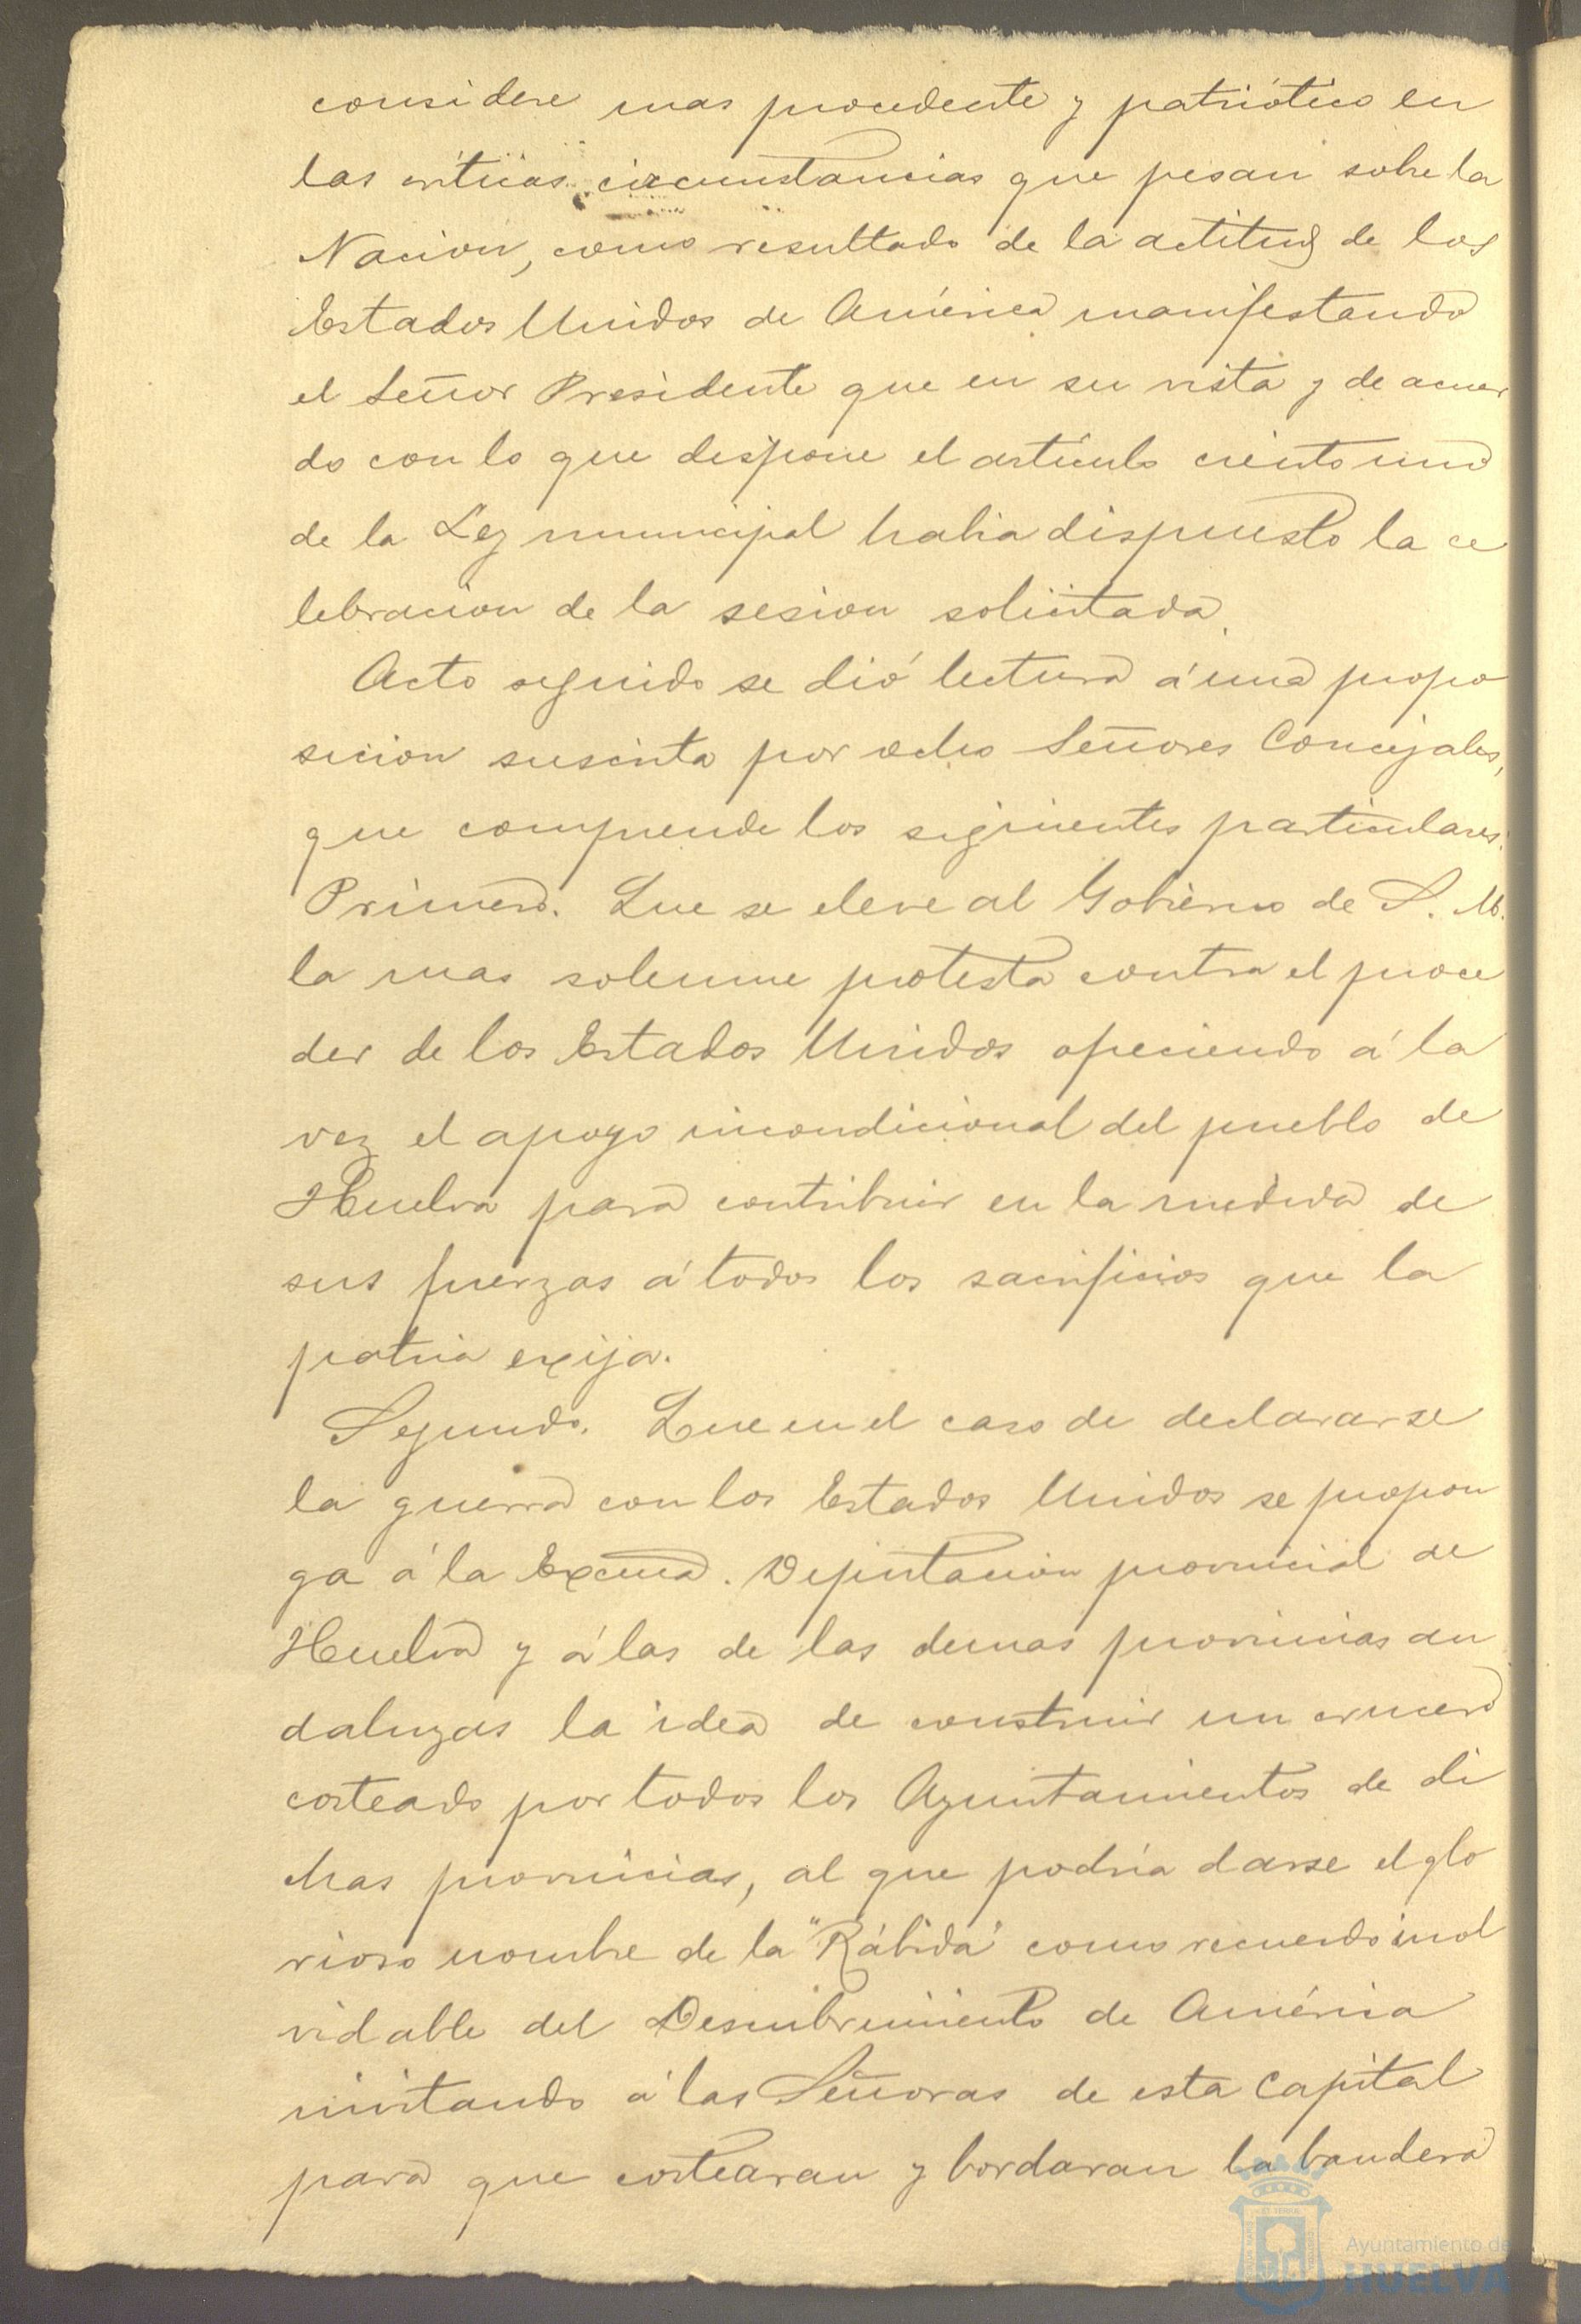 considere mas procedente y patriótico en
las criticas circunstancias que pesan sobre la
Nacion, como resultado de la actitud de los
Estados Unidos de América manifestando
el Señor Presidente que en su vista y de acuer
do con lo que dispone el artículo ciento uno
de la Ley municipal habia dispuesto la ce
lebracion de la sesion solicitada.
Acto seguido se dió lectura á una propo
sicion suscrita por ocho Señores Concejales,
que comprende los siguientes particulares.
Primero. Que se eleve al Gobierno de S. M.
la mas solemne protesta contra el proce
der de los Estados Unidos ofreciendo á la
vez el apoyo incondicional del pueblo de
Huelva para contribuir en la medida de
sus fuerzas á todos los sacrificios que la
patria exija.
Segundo. Que en el caso de declararse
la guerra con los Estados Unidos se propon
ga á la Excma. Diputacion provincial de
Huelva y á las de las demas provincias an
daluzas la idea de construir un crucero
costeado por todos los Ayuntamientos de di
chas provincias, al que podria darse el glo
rioso nombre de la "Rábida" como recuerdo inol
vidable del Descubrimiento de América
invitando á las Señoras de esta Capital
para que costearan y bordaran la bandera
Ayuntamiento de
HUELVA